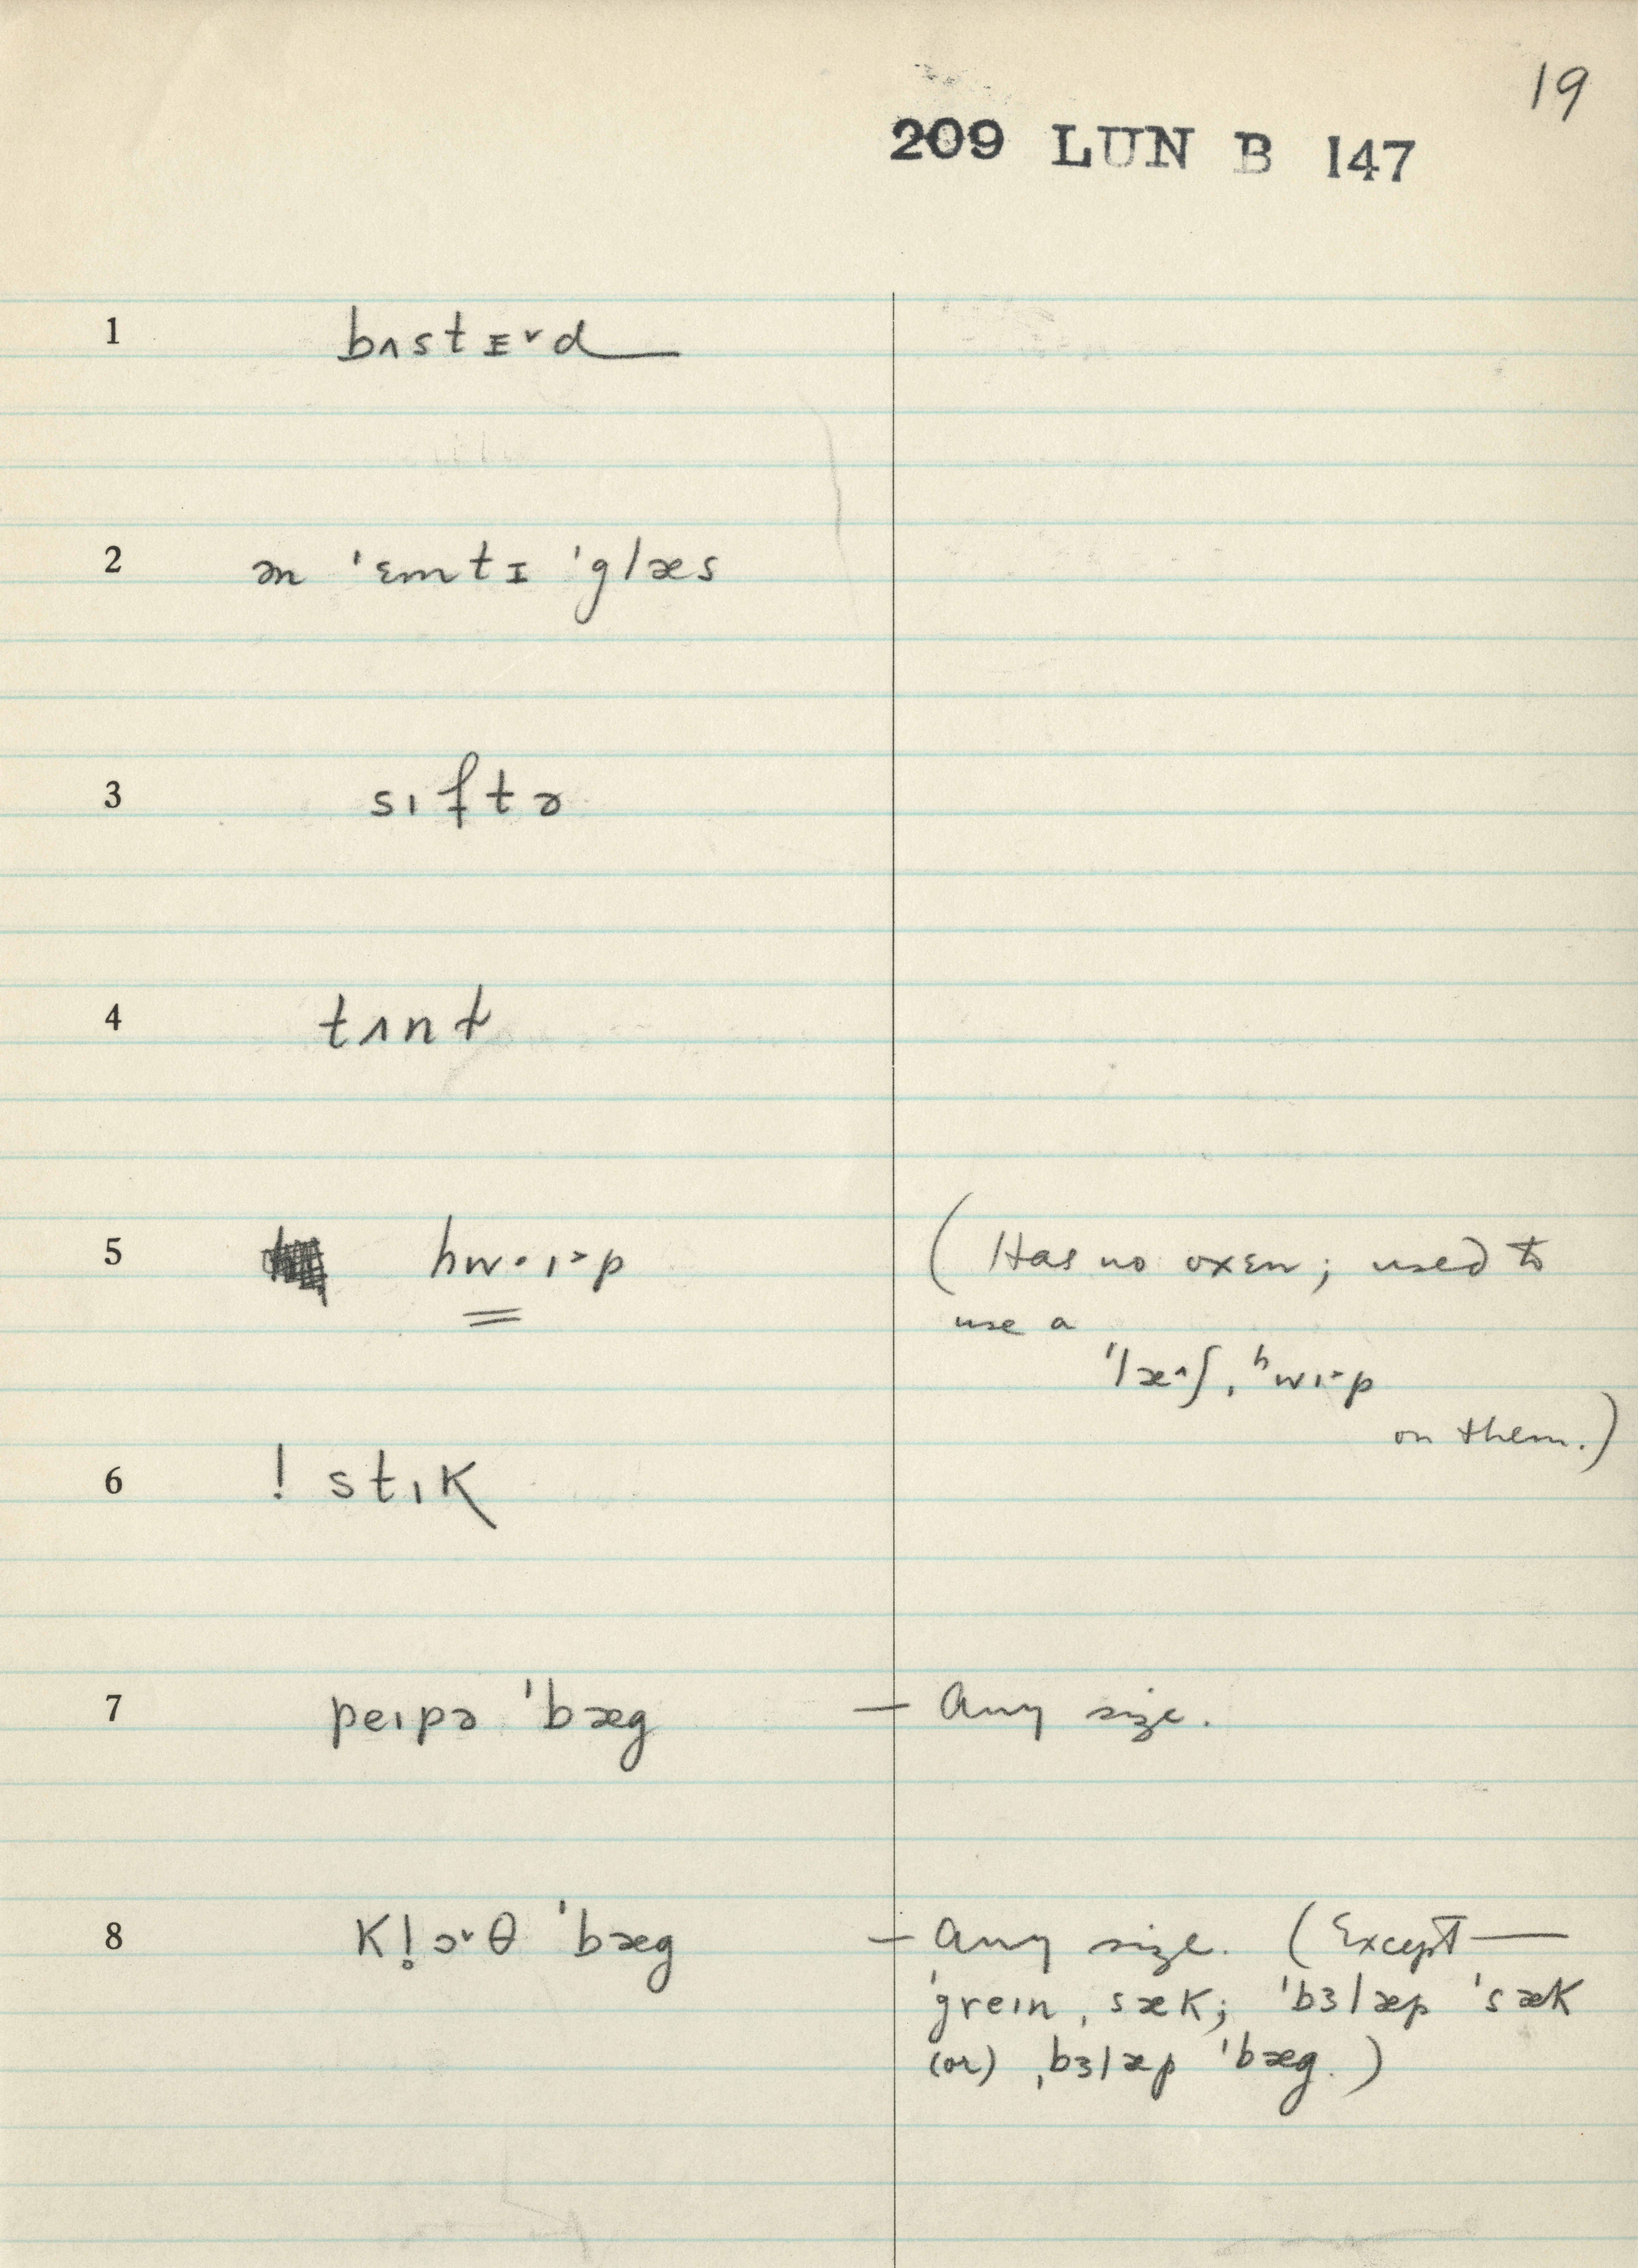 19
209 LUN B 147
1 bʌstɪ˅d
2 ən 'ɛmtɪ 'glæs
3 sıftə
4 tʌnt
5 hw·ı˃p (Has no oxen; used to
use a
'læ˄ʃˌʰwı˃p
on them.)
6 ! stıK
7 peıpə 'bæg — Any size.
8 Kl̥ɔ˅θ 'bæg — Any size. (Except —
'greınˌsæK; 'bɜlæp 'sæK
(or) ˌbɜlæp 'bæg.)